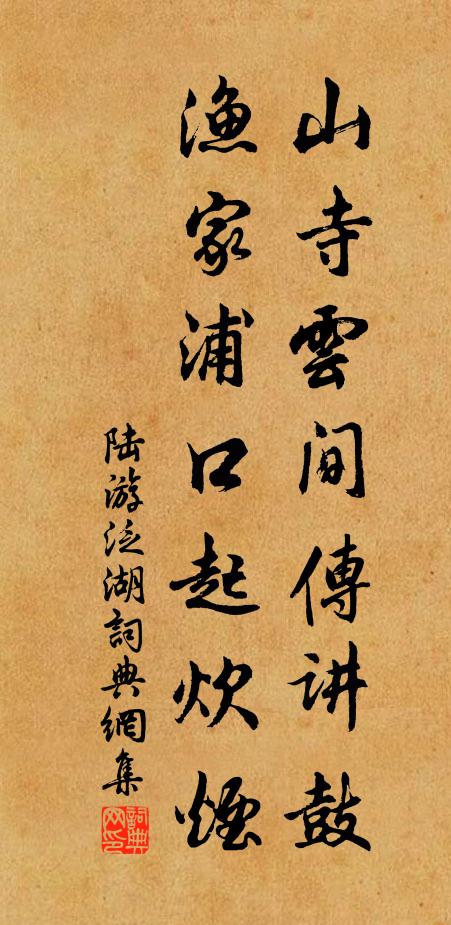 山寺雲间傳讲鼓
渔家浦口起炊煙
陆游泛湖詞典網集
詞典网印